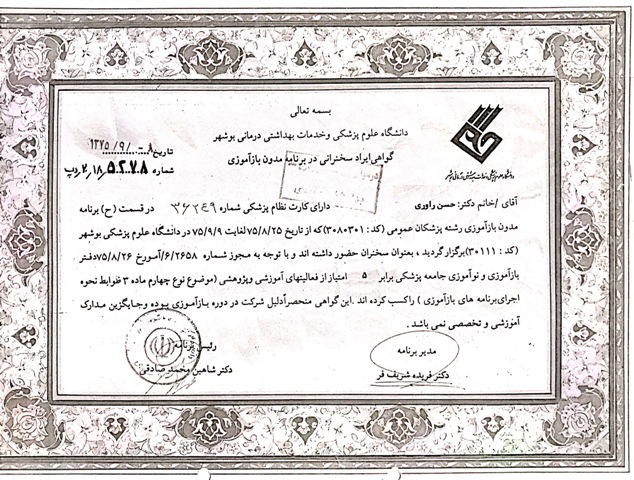 بسمه تعالی
دانشگاه علوم پزشکی وخدمات بهداشتی درمانی بوشهر
گواهی ایراد سخنرانی در برنامه مدون بازآموزی
تاریخ ۱۳۷۵/۹/۰۸
شماره ۵۲۷۸/۱۸/۲/پ
آقای /خانم دکتر: حسن راوری دارای کارت نظام پزشکی شماره ۳۶۲۴۹ در قسمت (ح) برنامه
مدون بازآموزی رشته پزشکان عمومی (کد : ۳۰۸۰۳۰۱)که از تاریخ ۷۵/۸/۲۵ لغایت ۷۵/۹/۹ در دانشگاه علوم پزشکی بوشهر
(کد : ۳۰۱۱۱)برگزار گردید ، بعنوان سخنران حضور داشته اند و با توجه به مجوز شماره ۶/۲۶۵۸/آمورخ ۷۵/۸/۲۶دفتر
بازآموزی و نوآموزی جامعه پزشکی برابر ۵ امتیاز از فعالیتهای آموزشی وپژوهشی (موضوع نوع چهارم ماده ۳ ضوابط نحوه
اجرای برنامه های بازآموزی ) راکسب کرده اند .این گواهی منحصراًدلیل شرکت در دوره بازآموزی بوده وجایگزین مدارک
آموزشی و تخصصی نمی باشد .
رئیس برنامه
دکتر شاهین محمد صادقی
مدیر برنامه
دکتر فریده شریف فر